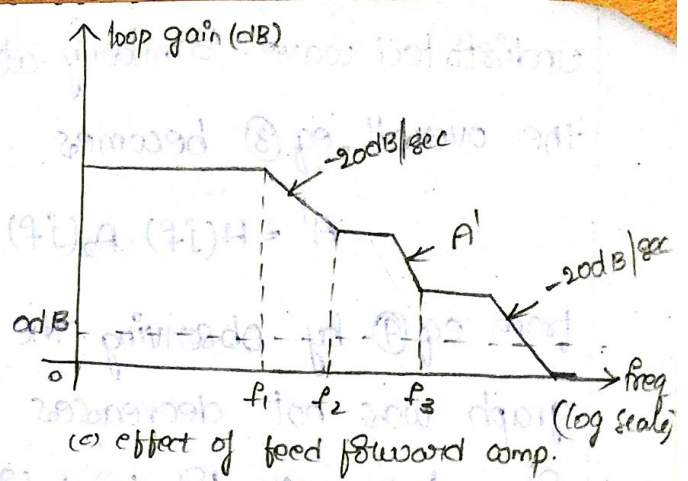 loop gain (dB)
-20dB/sec
A'
-20dB/sec
0dB
0
f1
f2
f3
freq
(log scale)
(c) effect of feed forward comp.